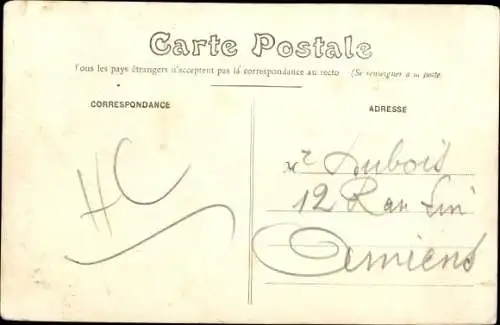 Carte Postale
Tous les pays étrangers n'acceptent pas la correspondance au recto (Se renseigner à la poste
CORRESPONDANCE
ADRESSE
HC
Mr Dubois
12
Amiens